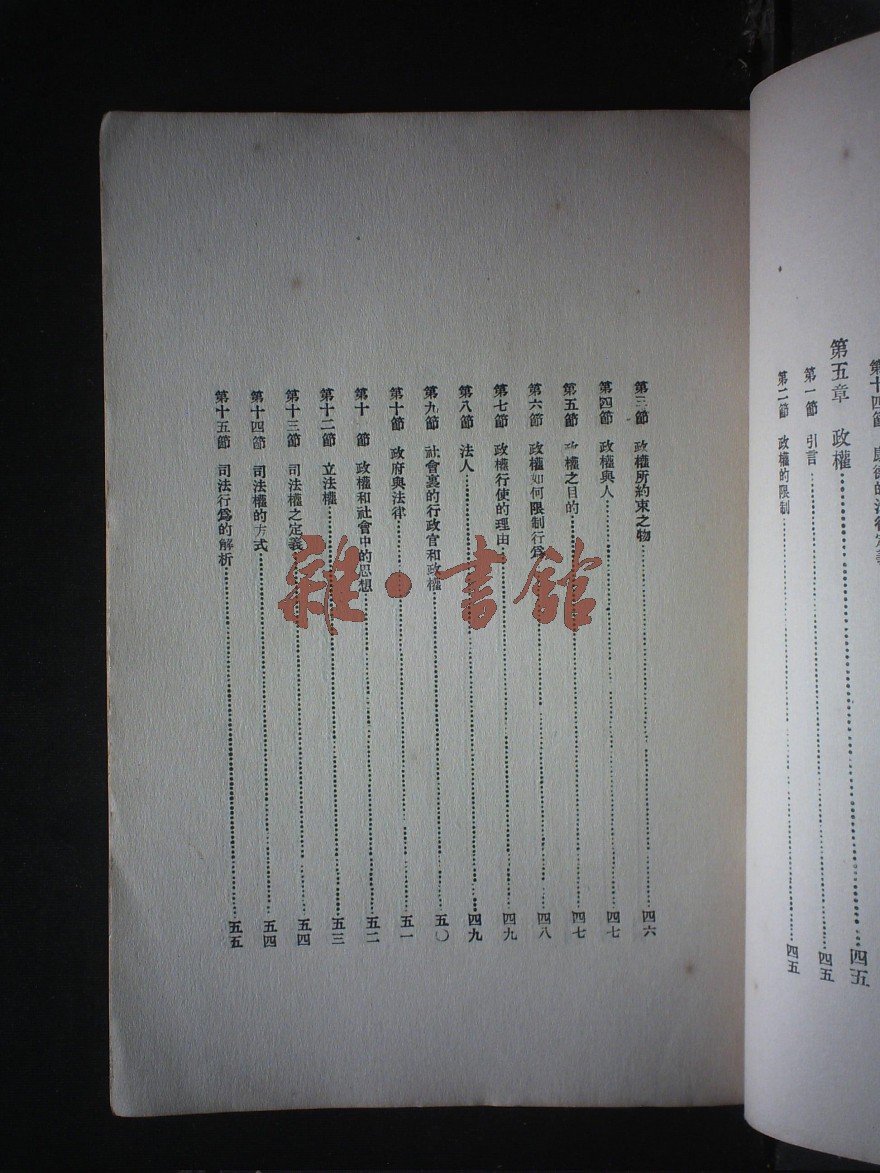 第十四節 康德的法律定義
第五章 政權……四五
第一節 引言……四五
第二節 政權的限制……四五
第三節 政權所約束之物……四六
第四節 政權與人……四七
第五節 政權之目的……四七
第六節 政權如何限制行爲……四八
第七節 政權行使的理由……四九
第八節 法人……四九
第九節 社會裏的行政官和政權……五〇
第十節 政府與法律……五一
第十 節 政權和社會中的思想……五二
第十二節 立法權……五三
第十三節 司法權之定義……五四
第十四節 司法權的方式……五四
第十五節 司法行爲的解析……五五
雜·書館